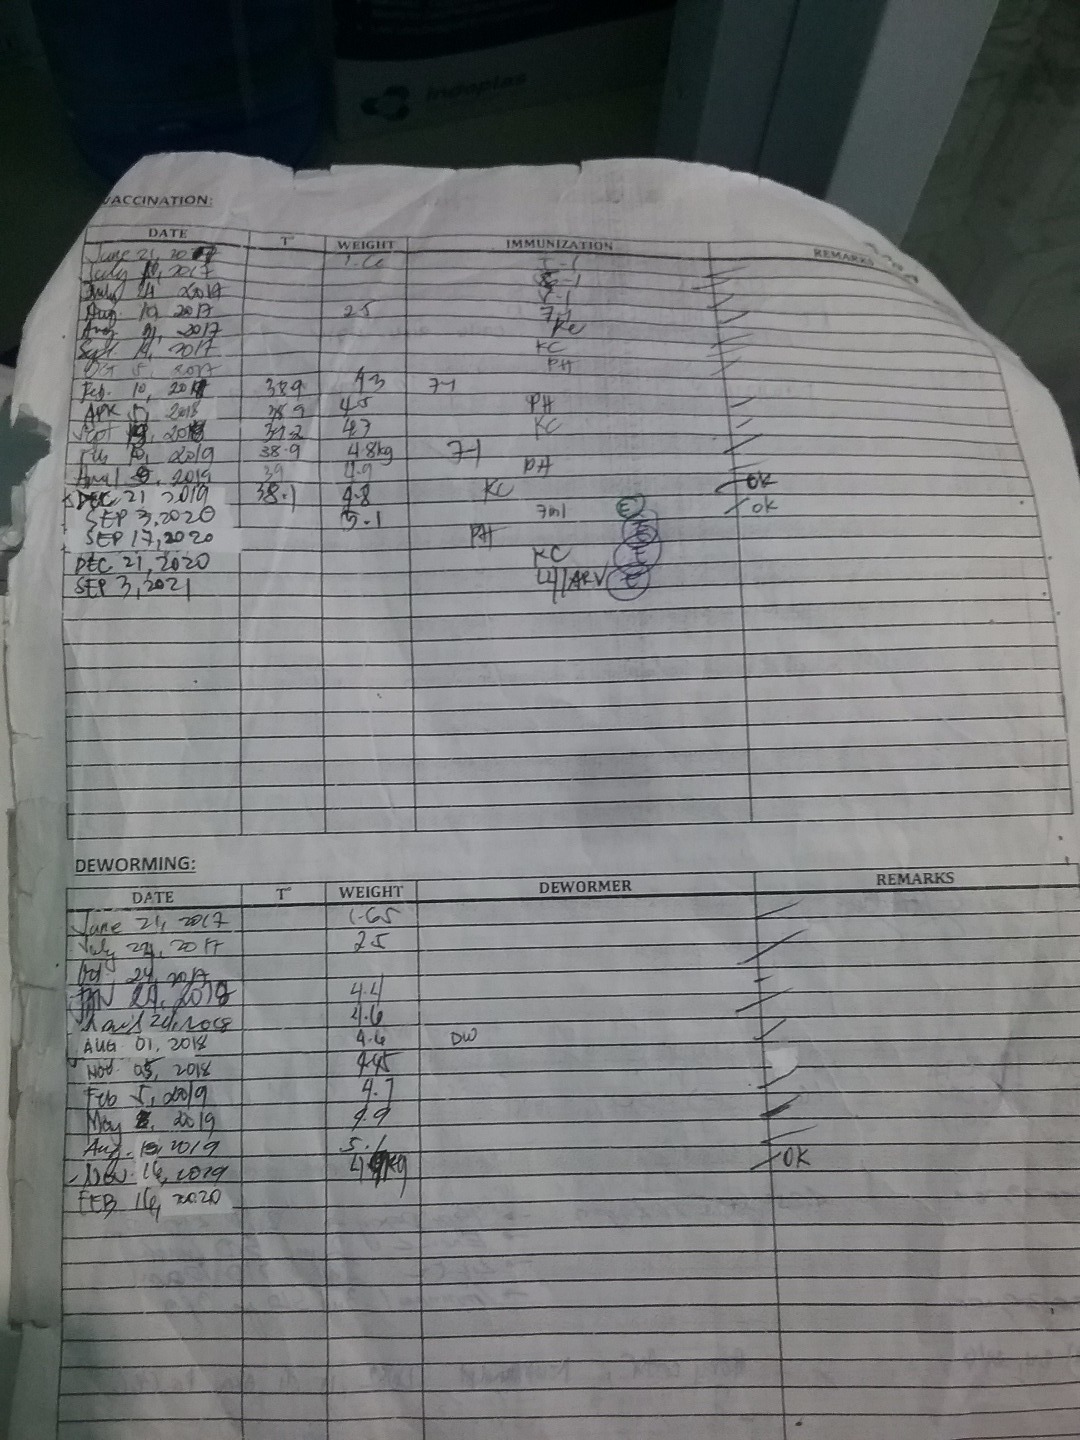 Indoplas
VACCINATION:
DATE T° WEIGHT IMMUNIZATION REMARKS
June 21, 2017
July 2017
July 24 2017
Aug. 19, 2017 2.5 7-1
Aug 2017 KC
Sept 19, 2017 KC
Oct 5, 2017 PH
Feb. 10, 2018 38.9 4.3 7-1
APR 5, 2018 38.9 4.5 PH
Sept 19, 2018 4.7 KC
10, 2019 38.9 4.8kg 7-1
April 5, 2019 39 4.9 PH
DEC 21 2019 38.1 4.8 KC OK
SEP 3, 2020 5.1 7in1 E OK
SEP 17, 2020 PH E
DEC 21, 2020 KC E
SEP 3, 2021 L4/ARV E
DEWORMING:
DATE T° WEIGHT DEWORMER REMARKS
June 21, 2017 1.65
July 24, 2017 2.5
Oct. 24, 2017
JAN 29, 2018 4.4
April 24, 2018 4.6
AUG 01, 2018 4.6 DW
Nov. 05, 2018 4.45
Feb 5, 2019 4.7
May 2019 4.9
Aug. 2019 5.1
Nov. 16, 2019 kg OK
FEB 16, 2020